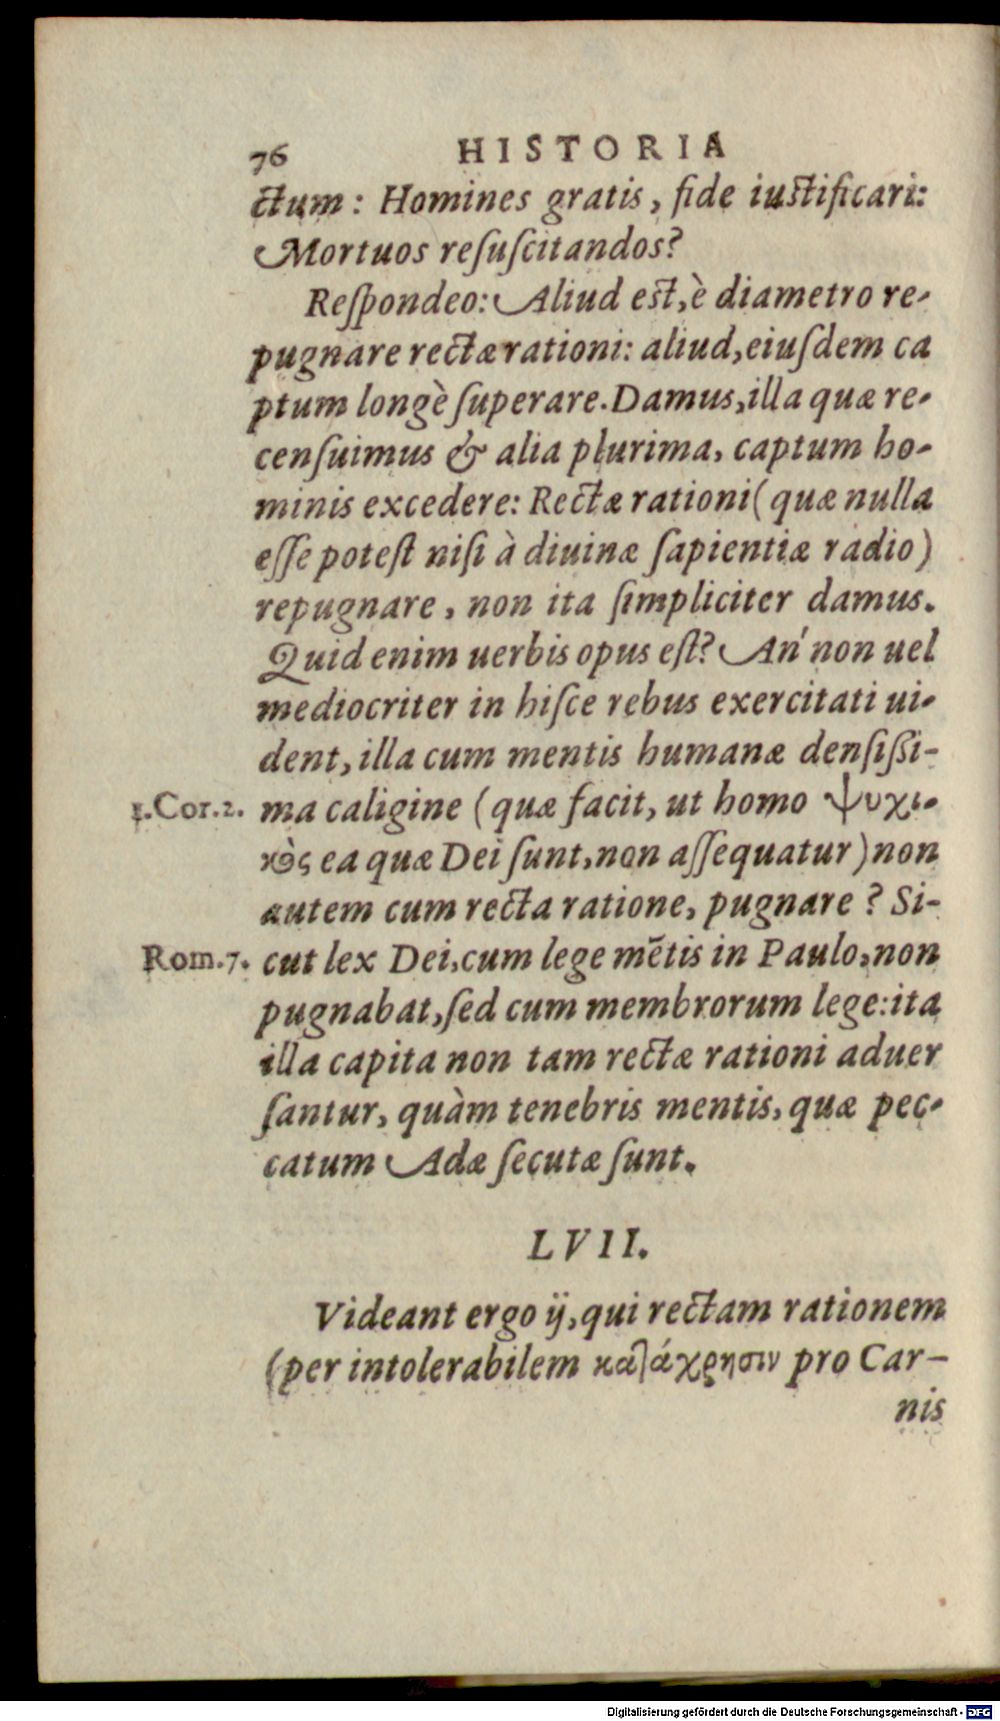 76 HISTORIA
ctum: Homines gratis, fide iustificari:
Mortuos reſuſcitandos?
Reſpondeo: Aliud est, è diametro re-
pugnare rectæ rationi: aliud, eiuſdem ca
ptum longè ſuperare. Damus, illa quæ re-
cenſuimus & alia plurima, captum ho-
minis excedere: Rectæ rationi (quæ nulla
eſſe poteſt niſi à diuinæ ſapientiæ radio)
repugnare, non ita ſimpliciter damus.
Quid enim uerbis opus eſt? An' non uel
mediocriter in hiſce rebus exercitati ui-
dent, illa cum mentis humanæ denſißi-
1.Cor.2. ma caligine (quæ facit, ut homo ψυχι-
κὸς ea quæ Dei ſunt, non aſſequatur) non
autem cum recta ratione, pugnare? Si-
Rom.7. cut lex Dei, cum lege mētis in Paulo, non
pugnabat, ſed cum membrorum lege: ita
illa capita non tam rectæ rationi aduer
ſantur, quàm tenebris mentis, quæ pec-
catum Adæ ſecutæ ſunt.
LVII.
Videant ergo ij, qui rectam rationem
(per intolerabilem κατάχρησιν pro Car-
nis
Digitalisierung gefördert durch die Deutsche Forschungsgemeinschaft - DFG